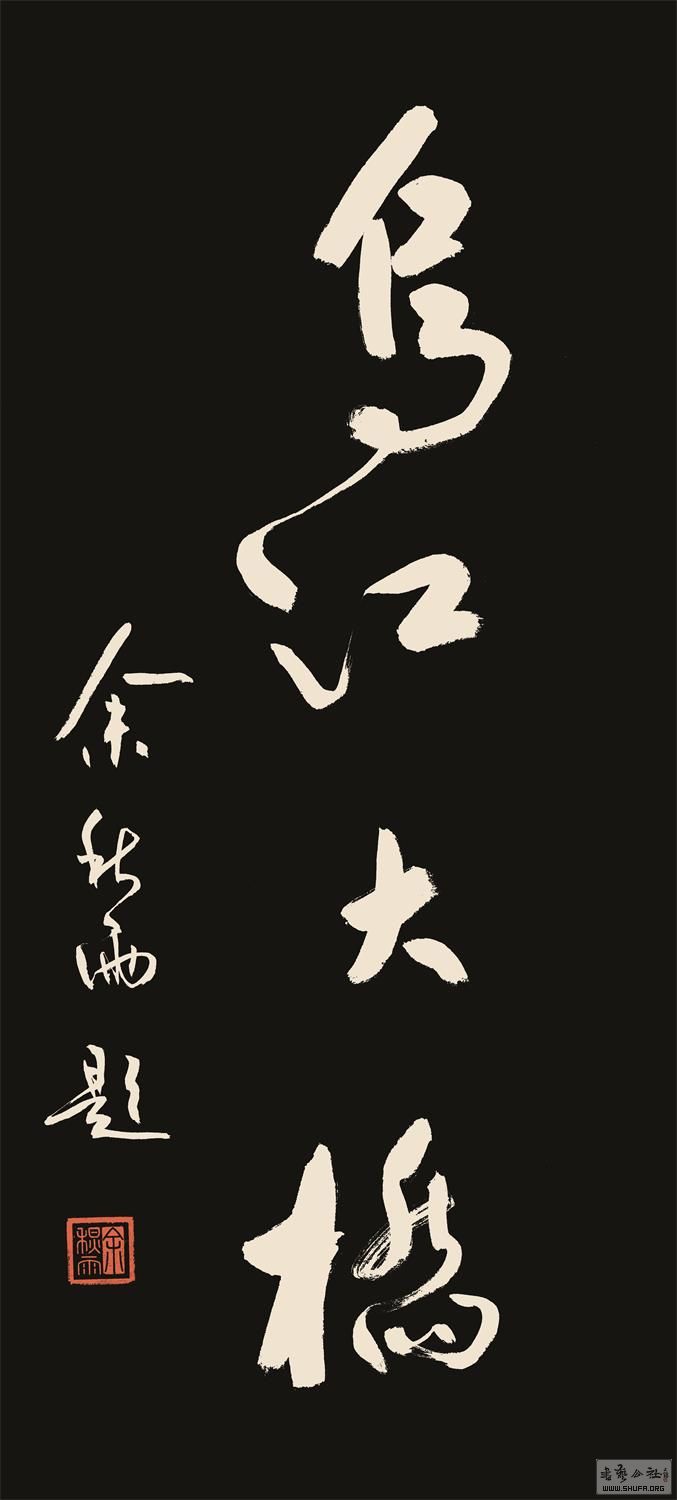 烏江大橋
余秋雨題
余秋雨
書藝公社
WWW.SHUFA.ORG